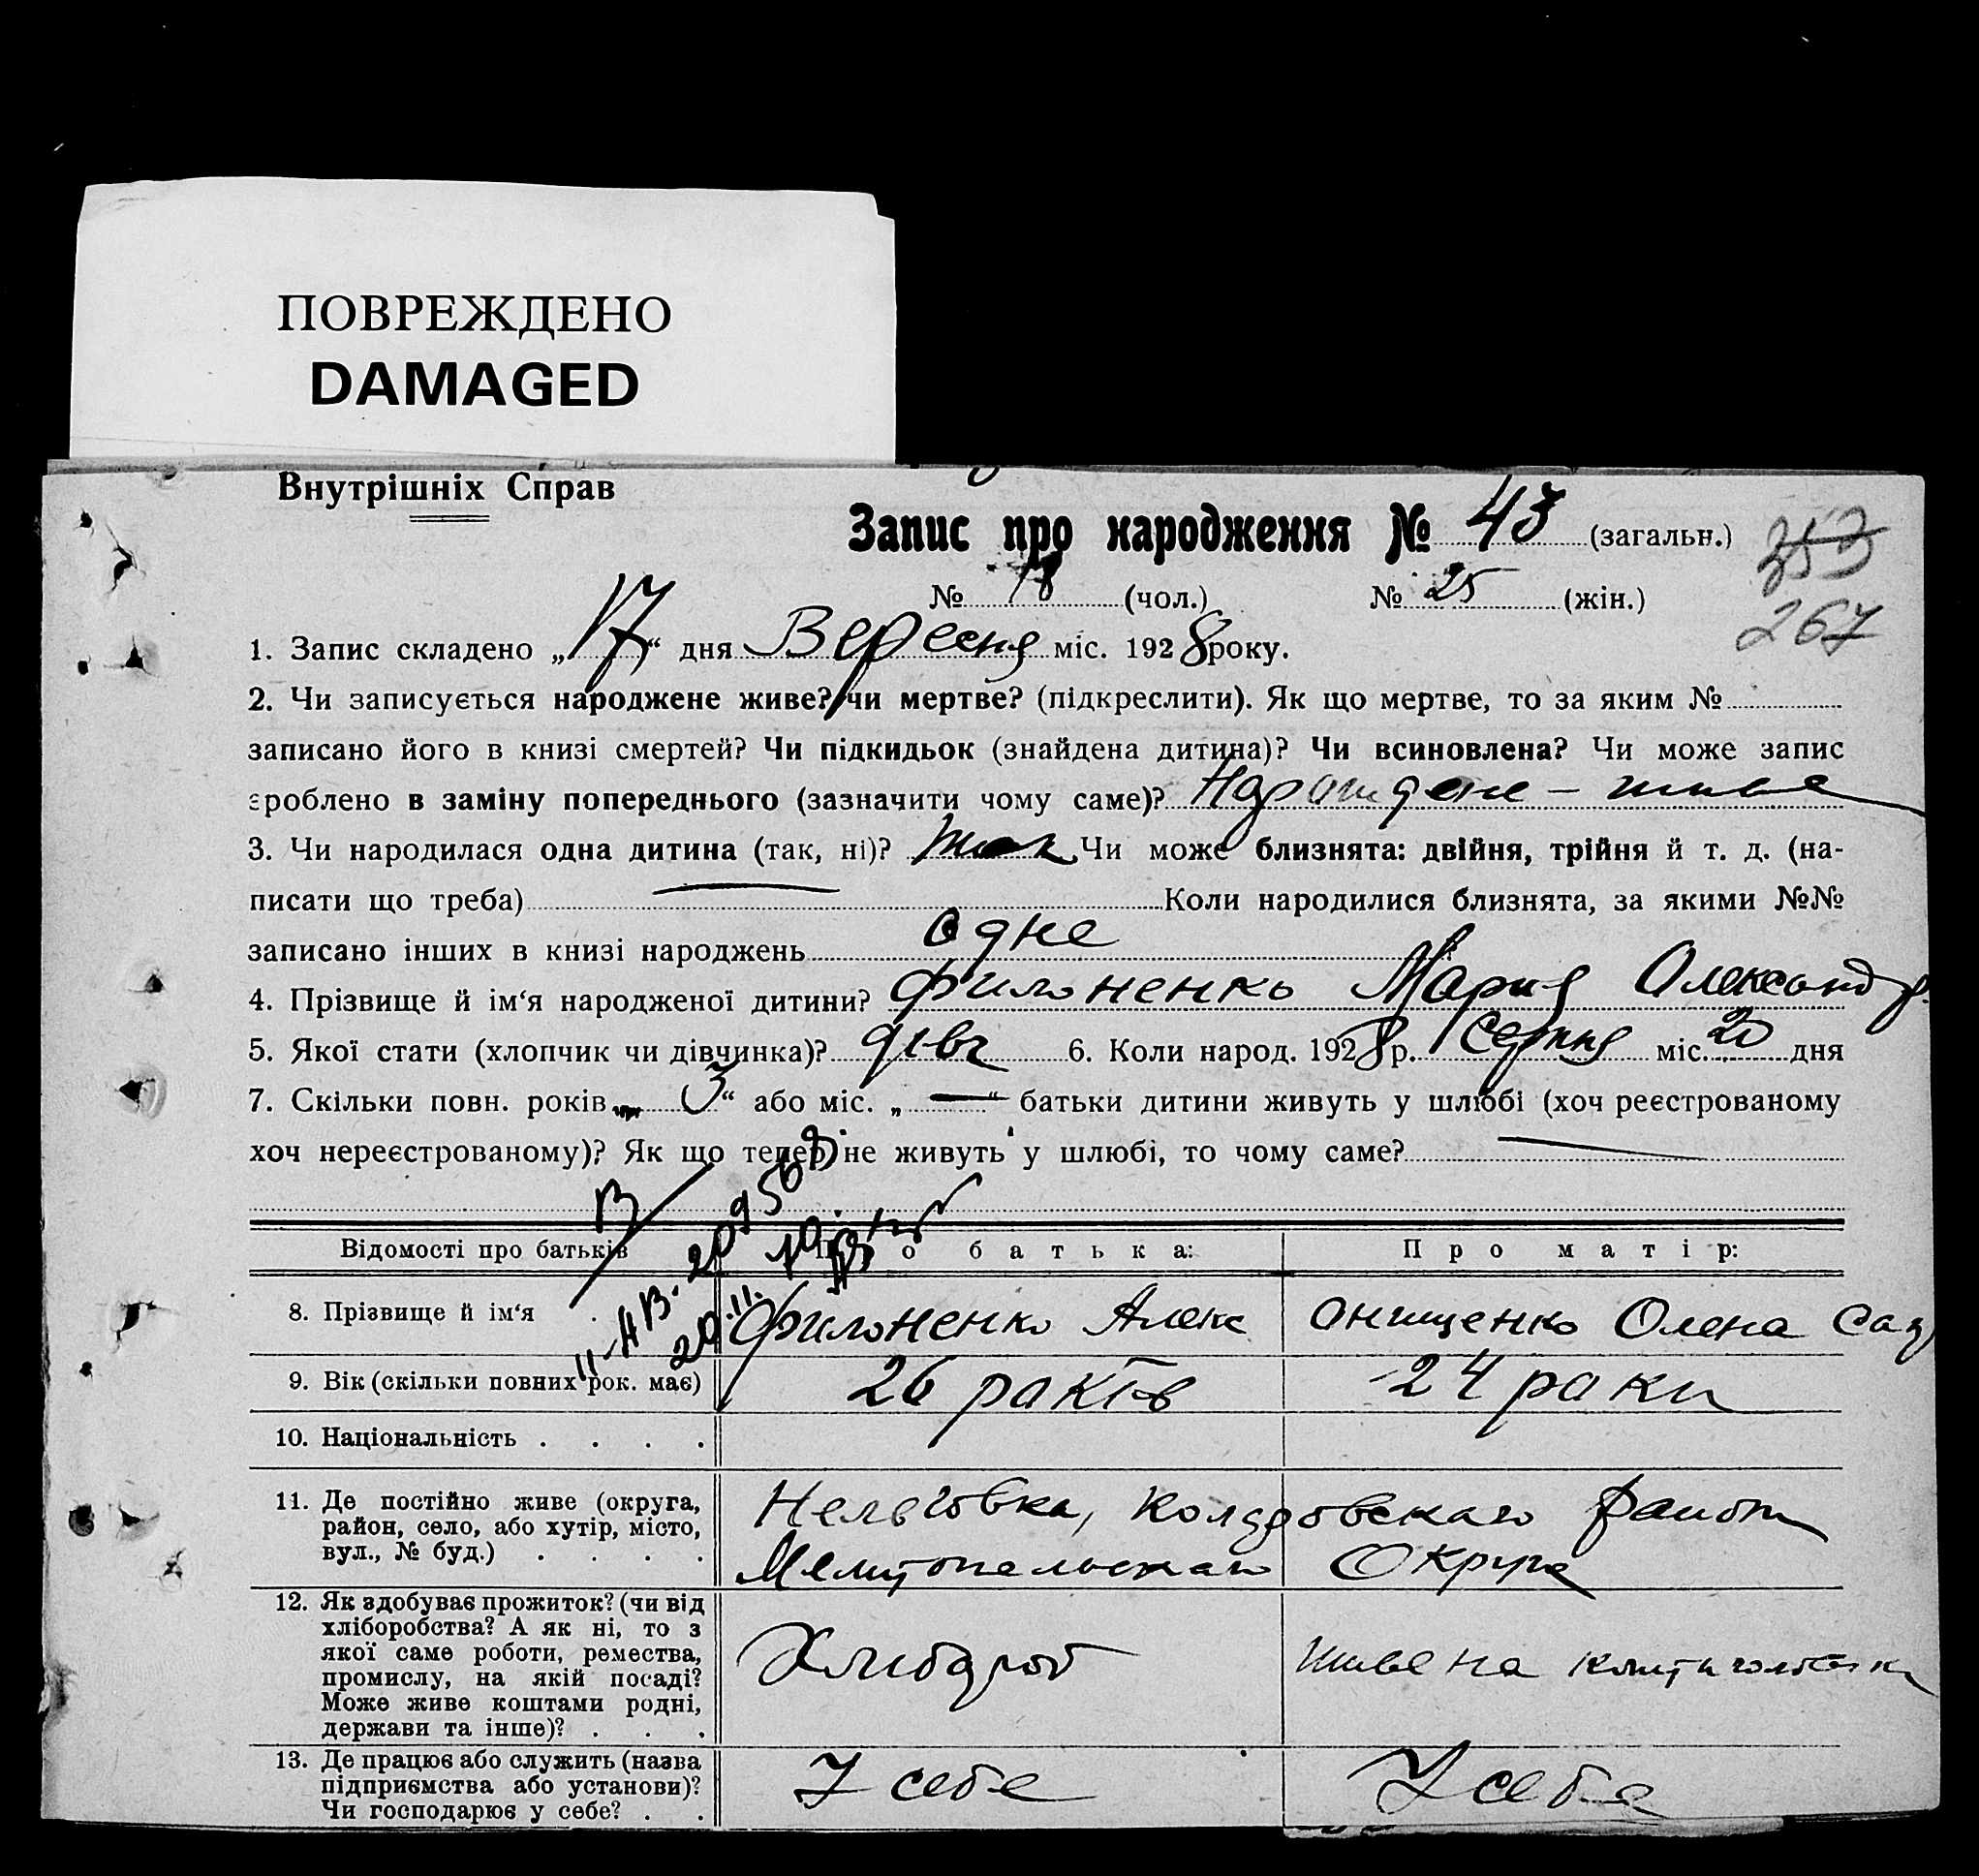 ПОВРЕЖДЕНО
DAMAGED
Внутрішніх Справ
Запис про народження № 43 (загальн.)
353
№ 18 (чол.) № 25 (жін.)
267
1. Запис складено „17“ дня Вересня міс. 1928 року.
2. Чи записується народжене живе? чи мертве? (підкреслити). Як що мертве, то за яким №
записано його в книзі смертей? Чи підкидьок (знайдена дитина)? Чи всиновлена? Чи може запис
зроблено в заміну попереднього (зазначити чому саме)? Народжене – живе
3. Чи народилася одна дитина (так, ні)? так Чи може близнята: двійня, трійня й т. д. (на-
писати що треба) — Коли народилися близнята, за якими №№
записано інших в книзі народжень одне
4. Прізвище й ім‘я народженої дитини? Филоненко Мария Олександр.
5. Якої стати (хлопчик чи дівчинка)? дівч 6. Коли народ. 1928 р. Серпня міс. 20 дня
7. Скільки повн. років „3“ або міс. „—“ батьки дитини живуть у шлюбі (хоч реєстрованому
хоч нереєстрованому)? Як що тепер не живуть у шлюбі, то чому саме? —
Відомості про батьків Про батька: Про матір:
8. Прізвище й ім‘я . Филоненко Алекс Онищенко Олена
9. Вік (скільки повних рок. має) 26 раків 24 раки
10. Національність . . . .
11. Де постійно живе (округа,
район, село, або хутір, місто,
вул., № буд.) . . . .
Нельговка, район
Мелитопельскаго Округа
12. Як здобуває прожиток? (чи від
хліборобства? А як ні, то з
якої саме роботи, ремества,
промислу, на якій посаді?
Може живе коштами родні,
держави та інше)? . . .
Хлибороб живе на
13. Де працює або служить (назва
підприємства або установи)?
Чи господарює у себе? . .
У себе У себе